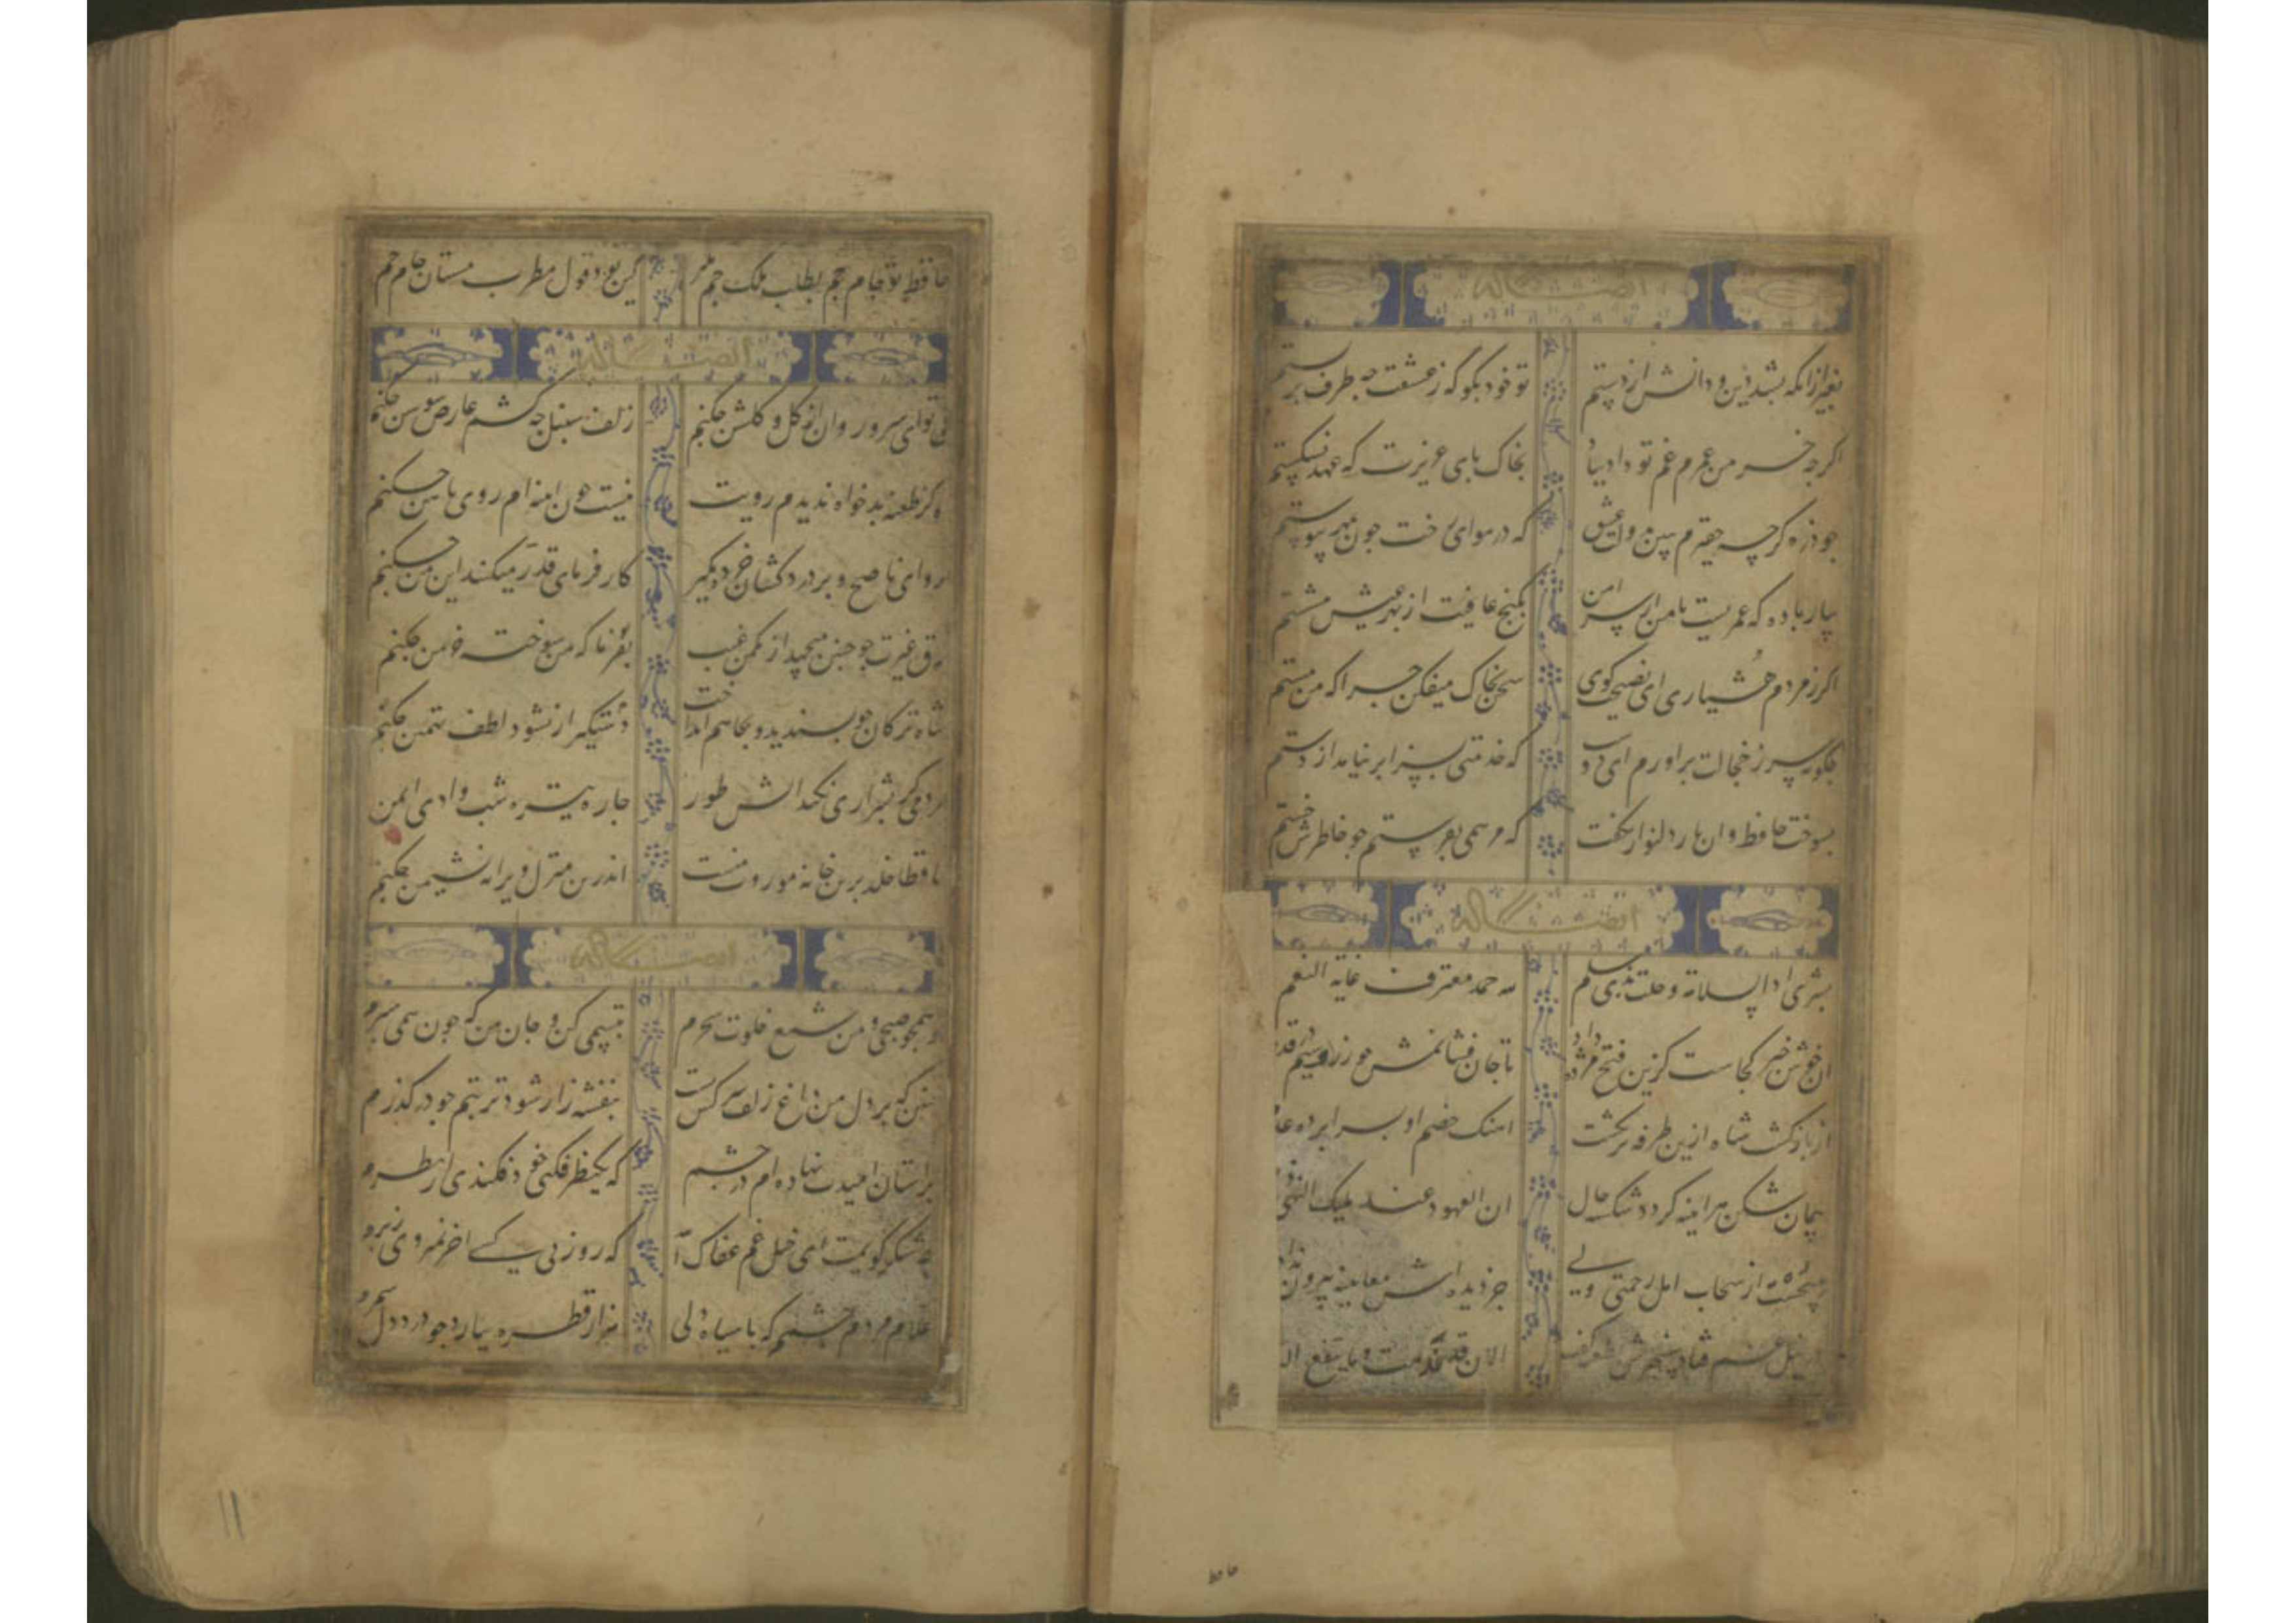 ایضاً له
بغیر ازانکه بشد دین و دانش از دستم تو خود بکو که ز عشقت چه طرف بر بستم
اکرچه خرمن عمرم غم تو داد بباد بخاک پای عزیزت که عهد نشکستم
جو ذره کرچه حقیرم ببین دولت عشق که در هوای رخت جون بمهر پیوستم
بیار باده که عمریست تا من از سر امن بکنج عافیت از بهر عیش ننشستم
اکر ز مردم هشیاری ای نصیحت کوی سخن بخاک میفکن جرا که من مستم
جکونه سر ز خجالت براورم ای دوست که خدمتی بسزا بر نیامد از دستم
بسوخت حافظ و ان یار دلنواز نکفت که مرهمی بفرستم جو خاطرش خستم
ایضاً له
بشری اذا السلامة حلت بذی سلم لله حمد معترف غایة النعم
ان خوش خبر کجاست کزین فتح مژده داد تا جان فشانمش جو زر و سیم در قدم
از بازکشت شاه ازین طرفه اهنک خصم او بسرابرده
پیمان شکن هراینه کردد شکسته حال ان العهود عند ملیک النهی
از سحاب امل رحمتی ولی جز دیده اش معاینه بیرون نداد
در نیل غم فتاد سپهرش بطعنه الان قد ندمت و ما ینفع
حافظ
حافظ تو جام جم بطلب ملک جم کین بود قول مطرب مستان جام جم
ایضاً له
بی تو ای سرو روان با کل و کلشن جکنم زلف سنبل جه کشم عارض سوسن جکنم
اه کز طعنه بدخواه ندیدم رویت نیست جون اینه ام روی ز اهن جکنم
برو ای ناصح و بر دردکشان خرده مکیر کارفرمای قدر میکند این من جکنم
برق غیرت جو جنین میجهد از مکمن غیب بفرما که من سوخته خرمن جکنم
شاه ترکان جو بسندید و بجاهم انداخت دستکیر ار نشود لطف تهمتن جکنم
مددی کر بشراری نکند اتش طور جاره تیره شب وادی ایمن جکنم
حافظا خلد برین خانه موروث منست اندرین منزل ویرانه نشیمن جکنم
ایضاً له
تو همجو صبحی و من شمع خلوت سحرم تبسمی کن و جان من که جون همی سپرم
جنین که بر دل من داغ زلف سرکش تست بنفشه زار شود تربتم جو در کذرم
بر استان امیدت نهاده ام در جشم که یک نظر فکنی خود فکندی از نظرم
جه شکر کویمت ای خیل غم عفاک الله که روز بی کسی اخر نمیروی ز برم
غلام مردم جشمم که با سیاه دلی هزار قطره ببارد جو درد دل شمرم
۱۱